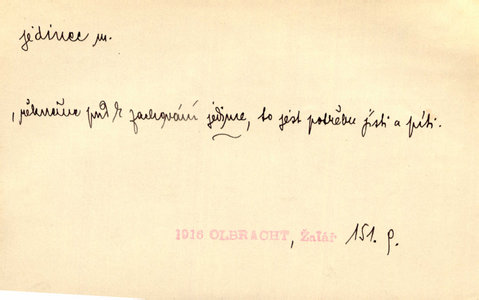 jedinec m.
, řekněme pud k zachování jedince, to jest potřebu jísti a píti.
1916 OLBRACHT, Žalář 151. p.